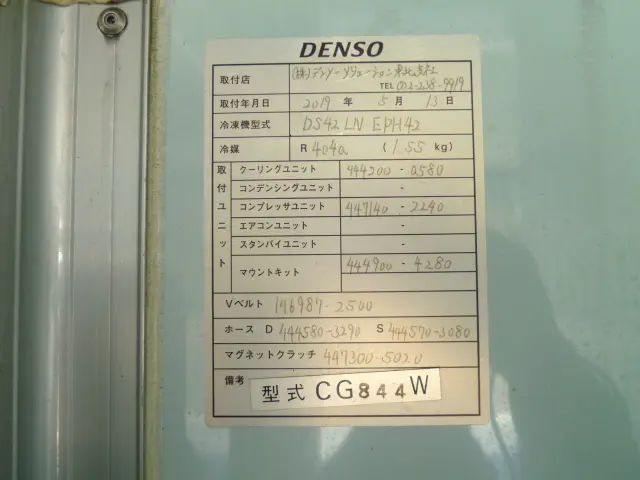 DENSO
取付店 (株)デンソーソリューション東北支社
TEL 022-238-9919
取付年月日 2019 年 5 月 13 日
冷凍機型式 DS42LN EPH42
冷媒 R 404a (1.55 kg)
取付ユニット
クーリングユニット 444200 - 0580
コンデンシングユニット -
コンプレッサユニット 447140 - 2290
エアコンユニット -
スタンバイユニット -
マウントキット 444900 - 4280
Vベルト 146987-2500
ホース D 444580-3290 S 444570-3080
マグネットクラッチ 447300-5020
備考 型式 CG844W